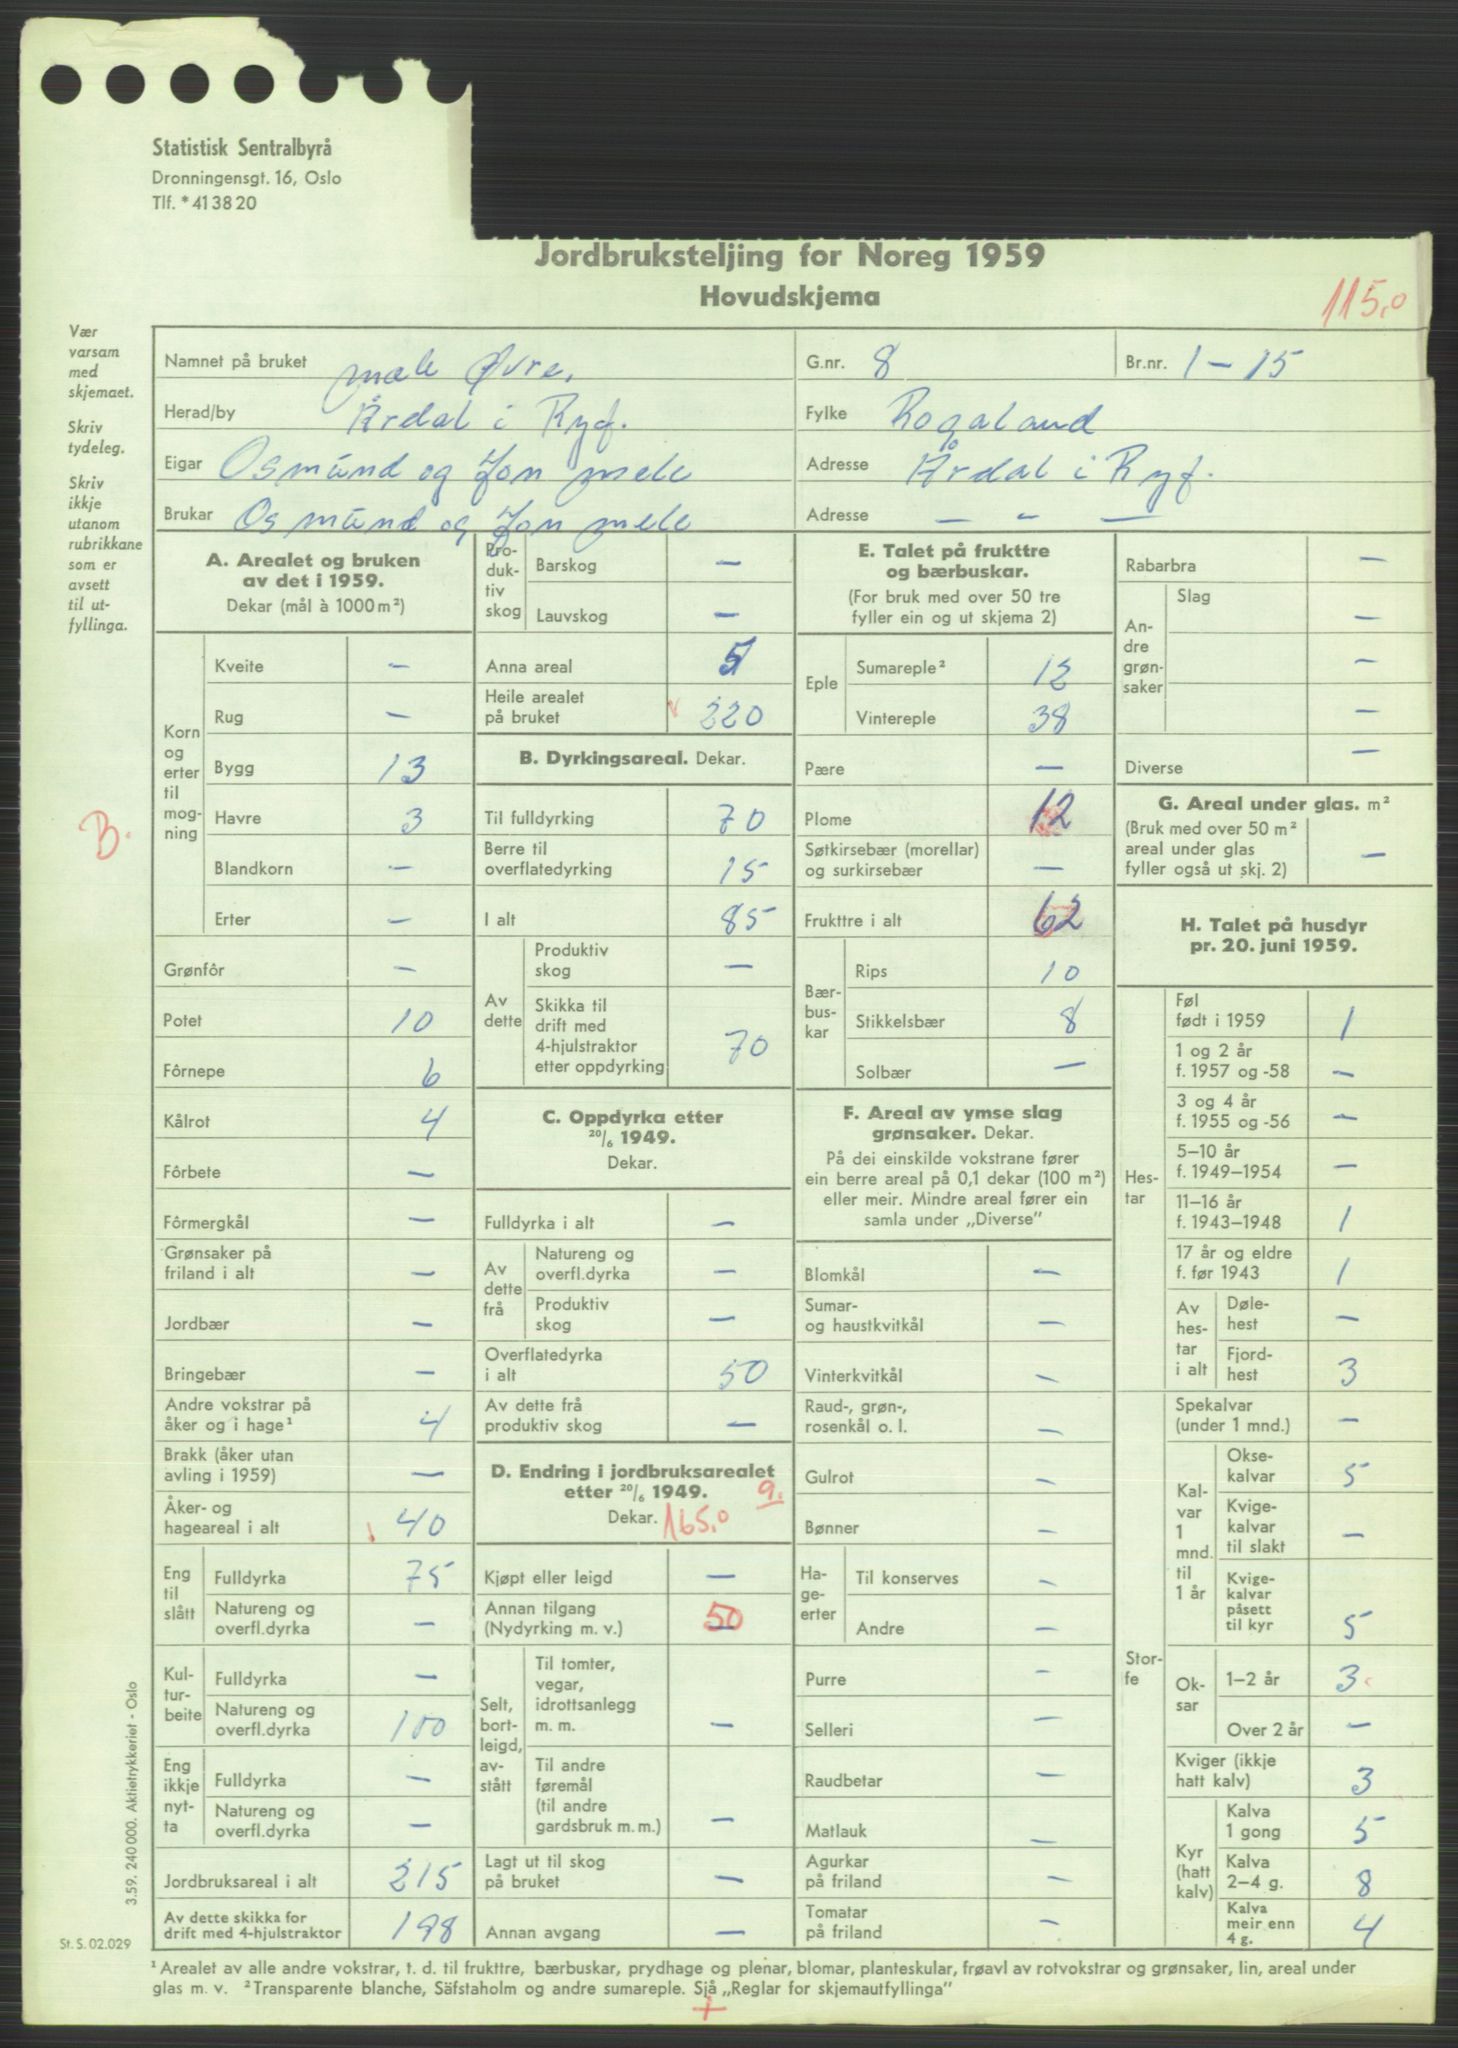 Statistisk Sentralbyrå
Dronningensgt. 16, Oslo
Tlf. * 41 38 20
Jordbruksteljing for Noreg 1959
Hovudskjema
115,0
Vær
varsam
med
skjemaet.
Skriv
tydeleg.
Skriv
ikkje
utanom
rubrikkane
som er
avsett
til ut-
fyllinga.
B.
Namnet på bruket Mæle Øvre.
G.nr. 8
Br.nr. 1 – 15
Herad/by Årdal i Ryf.
Fylke Rogaland
Eigar Osmund og Jon Mele
Adresse Årdal i Ryf.
Brukar Osmund og Jon Mele
Adresse — - —
A. Arealet og bruken
av det i 1959.
Dekar (mål à 1000 m²)
Korn
og
erter
til
mog-
ning
Kveite –
Rug –
Bygg 13
Havre 3
Blandkorn –
Erter –
Grønfôr –
Potet 10
Fôrnepe 6
Kålrot 4
Fôrbete –
Fôrmergkål –
Grønsaker på
friland i alt –
Jordbær –
Bringebær –
Andre vokstrar på
åker og i hage¹ 4
Brakk (åker utan
avling i 1959) –
Åker- og
hageareal i alt 40
Eng
til
slått
Fulldyrka 75
Natureng og
overfl.dyrka –
Kul-
tur-
beite
Fulldyrka –
Natureng og
overfl.dyrka 100
Eng
ikkje
nyt-
ta
Fulldyrka –
Natureng og
overfl.dyrka –
Jordbruksareal i alt 215
Av dette skikka for
drift med 4-hjulstraktor 198
Pro-
duk-
tiv
skog
Barskog –
Lauvskog –
Anna areal 5
Heile arealet
på bruket 220
B. Dyrkingsareal. Dekar.
Til fulldyrking 70
Berre til
overflatedyrking 15
I alt 85
Av
dette
Produktiv
skog –
Skikka til
drift med
4-hjulstraktor
etter oppdyrking 70
C. Oppdyrka etter
20/6 1949.
Dekar.
Fulldyrka i alt –
Av
dette
frå
Natureng og
overfl.dyrka –
Produktiv
skog –
Overflatedyrka
i alt 50
Av dette frå
produktiv skog –
D. Endring i jordbruksarealet
etter 20/6 1949. 9.
Dekar. 165,0
Kjøpt eller leigd –
Annan tilgang
(Nydyrking m. v.) 50
Selt,
bort-
leigd,
av-
stått
Til tomter,
vegar,
idrottsanlegg
m. m. –
Til andre
føremål
(til andre
gardsbruk m. m.) –
Lagt ut til skog
på bruket –
Annan avgang –
E. Talet på frukttre
og bærbuskar.
(For bruk med over 50 tre
fyller ein og ut skjema 2)
Eple
Sumareple² 12
Vintereple 38
Pære –
Plome 12
Søtkirsebær (morellar)
og surkirsebær –
Frukttre i alt 62
Bær-
bus-
kar
Rips 10
Stikkelsbær 8
Solbær –
F. Areal av ymse slag
grønsaker. Dekar.
På dei einskilde vokstrane fører
ein berre areal på 0,1 dekar (100 m²)
eller meir. Mindre areal fører ein
samla under „Diverse”
Blomkål –
Sumar-
og haustkvitkål –
Vinterkvitkål –
Raud-, grøn-,
rosenkål o. l. –
Gulrot –
Bønner –
Ha-
ge-
erter
Til konserves –
Andre –
Purre –
Selleri –
Raudbetar –
Matlauk –
Agurkar
på friland –
Tomatar
på friland –
Rabarbra –
An-
dre
grøn-
saker
Slag –
–
–
Diverse –
G. Areal under glas. m²
(Bruk med over 50 m²
areal under glas
fyller også ut skj. 2) –
H. Talet på husdyr
pr. 20. juni 1959.
Hes-
tar
Føl
født i 1959 1
1 og 2 år
f. 1957 og -58 –
3 og 4 år
f. 1955 og -56 –
5–10 år
f. 1949–1954 –
11–16 år
f. 1943–1948 1
17 år og eldre
f. før 1943 1
Av
hes-
tar
i alt
Døle-
hest –
Fjord-
hest 3
Stor-
fe
Spekalvar
(under 1 mnd.) –
Kal-
var
1
mnd.
til
1 år
Okse-
kalvar 5
Kvige-
kalvar
til slakt –
Kvige-
kalvar
påsett
til kyr 5
Ok-
sar
1–2 år 3
Over 2 år –
Kviger (ikkje
hatt kalv) 3
Kyr
(hatt
kalv)
Kalva
1 gong 5
Kalva
2–4 g. 8
Kalva
meir enn
4 g. 4
3.59. 240 000. Aktietrykkeriet - Oslo
St. S. 02.029
¹ Arealet av alle andre vokstrar, t. d. til frukttre, bærbuskar, prydhage og plenar, blomar, planteskular, frøavl av rotvokstrar og grønsaker, lin, areal under
glas m. v. ² Transparente blanche, Säfstaholm og andre sumareple. Sjå „Reglar for skjemautfyllinga”
+